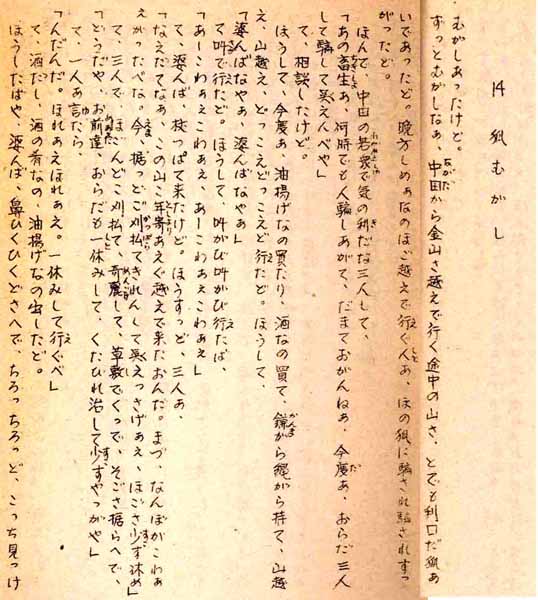 14 狐むがし
むがしあったけど。
ずっとむがしなぁ、中田から金山さ越えで行ぐ途中の山さ、とでも利口だ狐あ
いであったど。晩方しめぁなのほご越えで行ぐ人ぁ、ほの狐に騙され騙されすっ
がったど。
ほんで、中田の若衆で気の利だな三人して、
「あの畜生ぁ、何時でも人騙しあがて、だまておがんねぁ、今度ぁ、おらだ三人
して騙して笑えんべや」
て、相談したけど。
ほうして、今度ぁ、油揚げなの買たり、酒なの買て、鎌から縄がら持て、山越
え、山越え、どっこえどっこえど行たど。ほうして、
「婆んばなやぁ、婆んばなやぁ」
て叫で行たど。ほうして、叫がび叫がび行たば、
「あーこわぁえこわぁえ、あーこわぁえこわぁえ」
て、婆んば 杖っぱて来たけど。ほうすっど、三人ぁ、
「なえだてなぁ、この山こ年寄あえぐ越えで来たおんだ。まづ、なんぼがこわぁ
ぇがったべな。今、据っどご刈払てきれんして笑えっさげぁえ、ほごさ少ず休め」
て、三人で、ほごんどこ刈払て、奇麗して、草敷でくっで、そごさ据らへで、
「どうだや、お前達、おらだも一休みして、くたびれ治して少ずやっがや」
て、一人ぁ言たら、
「んだんだ。ほれぁえほれぁえ。一休みして行ぐべ」
て、酒だし、酒の肴なの、油揚げなの出したど。
ほうしたばや、婆んば、鼻ひくひくどさへで、ちろっちろっど、こっち見っけ